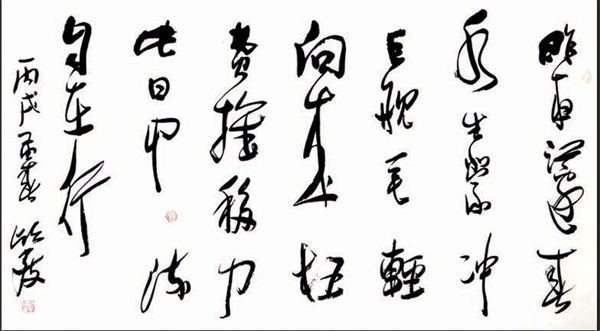 昨夜江邊春
水生蒙冲
巨艦一毛輕
向來枉
費推移力
此日中流
自在行
丙戌春